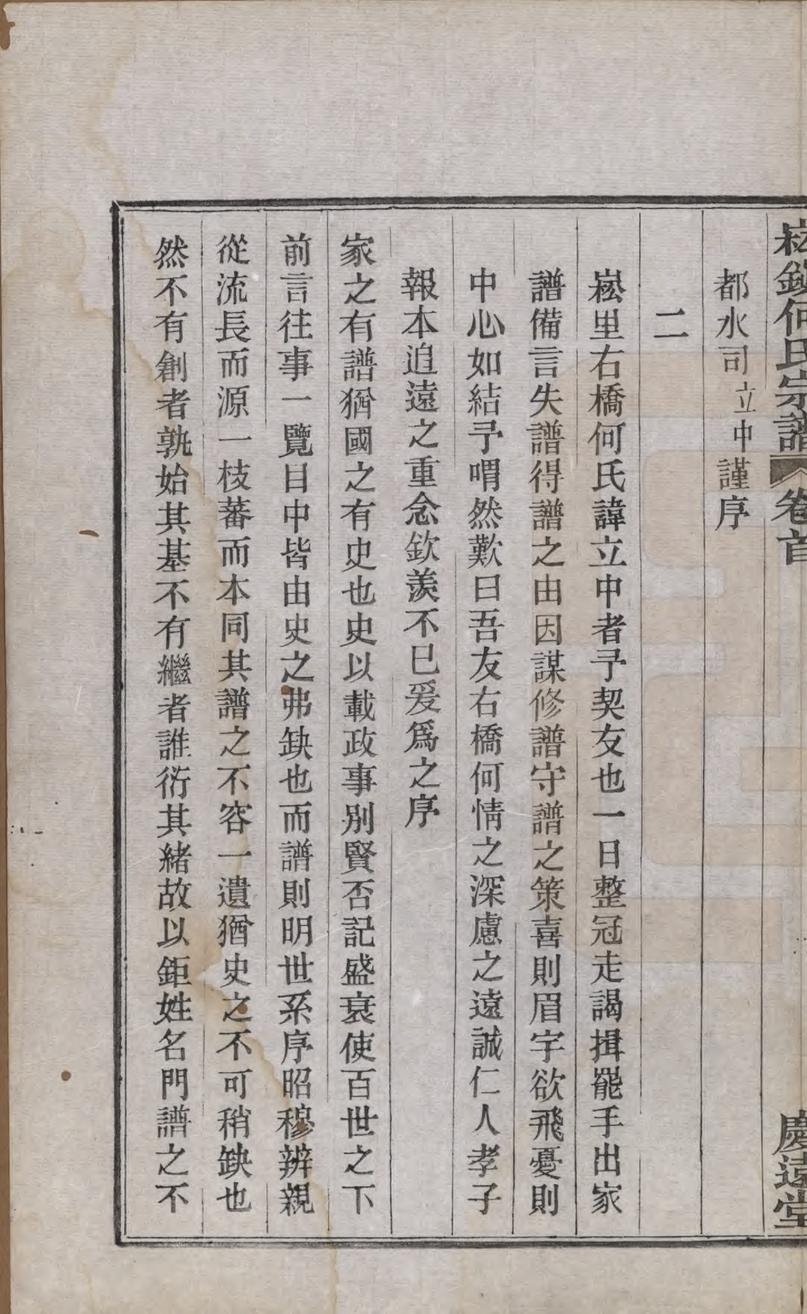 崧鎮何氏宗譜 卷首 慶遠堂
都水司立中謹序
二
崧里右橋何氏諱立中者予契友也一日整冠走謁揖罷手出家
譜備言失譜得譜之由因謀修譜守譜之策喜則眉宇欲飛憂則
中心如結予喟然歎曰吾友右橋何情之深慮之遠誠仁人孝子
報本追遠之重念欽羨不已爰為之序
家之有譜猶國之有史也史以載政事別賢否記盛衰使百世之下
前言往事一覽目中皆由史之弗缺也而譜則明世系序昭穆辨親
從流長而源一枝蕃而本同其譜之不容一遺猶史之不可稍缺也
然不有創者孰始其基不有繼者誰衍其緒故以鉅姓名門譜之不